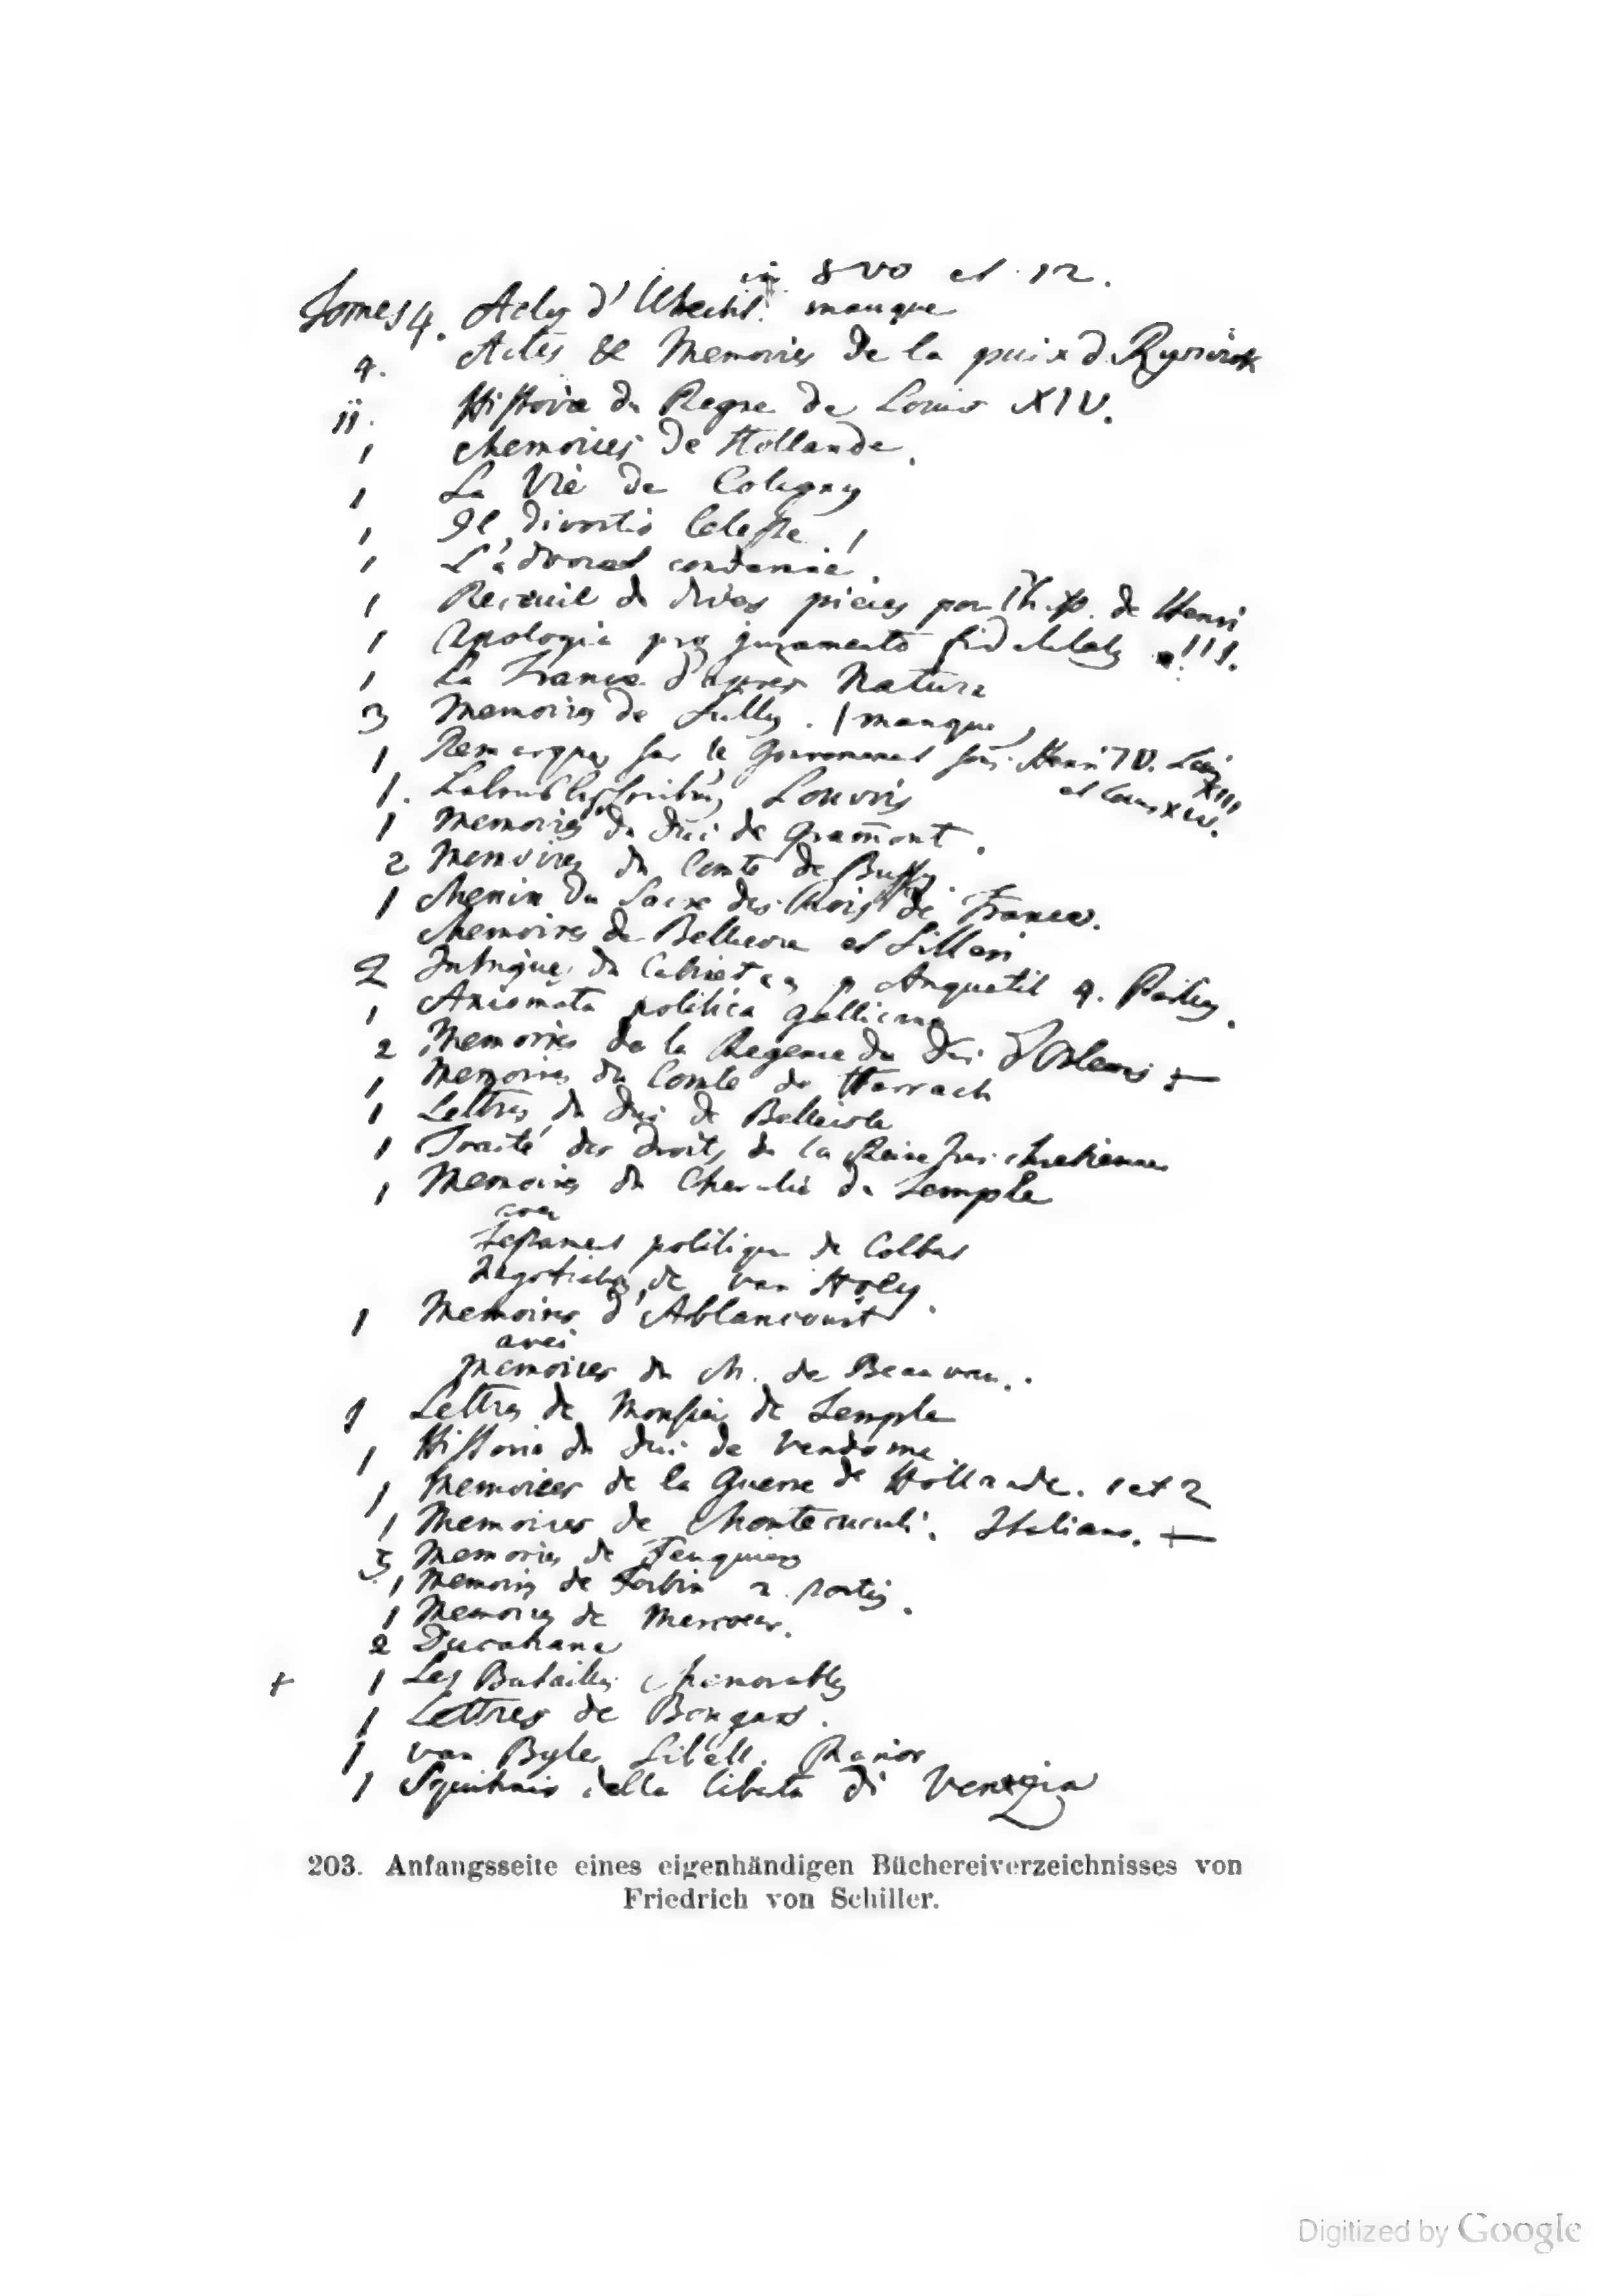 in 8vo et 12.
Tomes 4. Actes d'Utrecht. manque
4. Actes & Memoires de la paix d. Ryswick
ii. Histoire du Regne de Louis XIV.
1 Memoires de Hollande.
1 La Vie de Coligny
1 Il divortio Celeste !
1 L'advocat condamné.
1 Recueil de div. pieces pour de Henri
1 Apologia pro juramento fidelitatis !!!.
1 La France d'apres Nature
3 Memoires de Sully. 1 manque
1 Remarques sur le Gouvernement sous Henri IV. Louis XIII
et Louis XIV.
1. Louvois
1 Memoires du Duc de Gramont.
2 Memoires du Comte de Bussy.
1 Chemin du Sacre des Rois de France.
Memoires de Bellievre et Silleri
2 Intrigue du Cabinet p Anquetil 4. Parties.
1 Axiomata politica gallicana
2 Memoires de la Regence du Duc d'Orleans +
1 Memoires du Comte de Harrach
1 Lettres du Duc de Belleisle
1 Traité des droits de la Reine tres chretienne
1 Memoires du Chevalier de Temple
avec
Testament politique de Colbert
Negotiation de van Hoey.
1 Memoires d'Ablancourt
avec
Memoires du M. de Beauvau..
1 Lettres de Monsieur de Temple
1 Histoire du duc de Vendome
1 Memoires de la Guerre de Hollande. 1 et 2
1 Memoires de Montecuculi. Italiano. +
3 Memoires de Feuquieres
1 Memoires de Forbin 2. parties.
1 Memoires de Mercoeur.
2 Ducatiana
+ 1 Les Batailles Memorables
1 Lettres de Bongars.
1 van Byler Libell. Rarior
1 Squitinio della liberta di Venezia
203. Anfangsseite eines eigenhändigen Büchereiverzeichnisses von
Friedrich von Schiller.
Digitized by Google